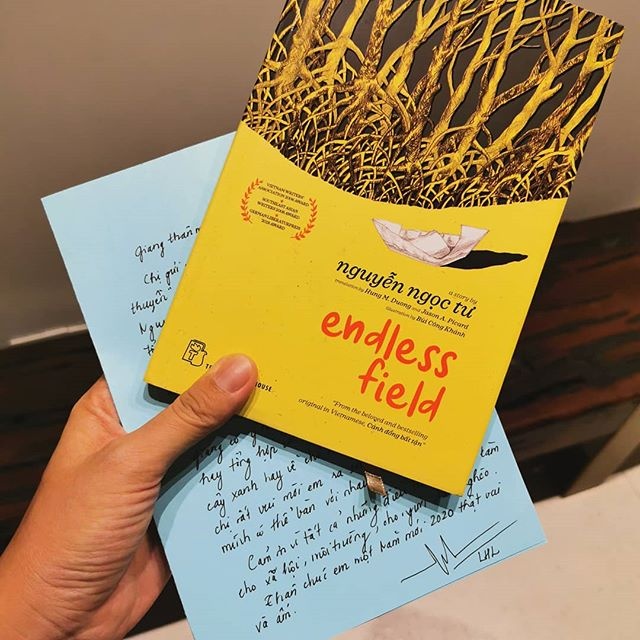 VIETNAM WRITERS'
ASSOCIATION 2006 AWARD
SOUTHEAST ASIAN
WRITERS 2008 AWARD
GERMAN LITERATURPREIS
2018 AWARD
a story by
nguyễn ngọc tư
translation by Hung M. Duong and Jason A. Picard
illustration by Bùi Công Khánh
endless
field
"From the beloved and bestselling
original in Vietnamese, Cánh đồng bất tận"
HOUSE
Giang thân m
Chị gửi
thuyền
Ngu
hay tổng hợp
cây xanh hay về ch
chị rất vui mỗi em
mình có thể bàn với nhau
Cảm ơn vì tất cả những
cho xã hội, môi trường, cho
Thân chúc em một năm mới 2020 thật vui
và ấm.
LHL